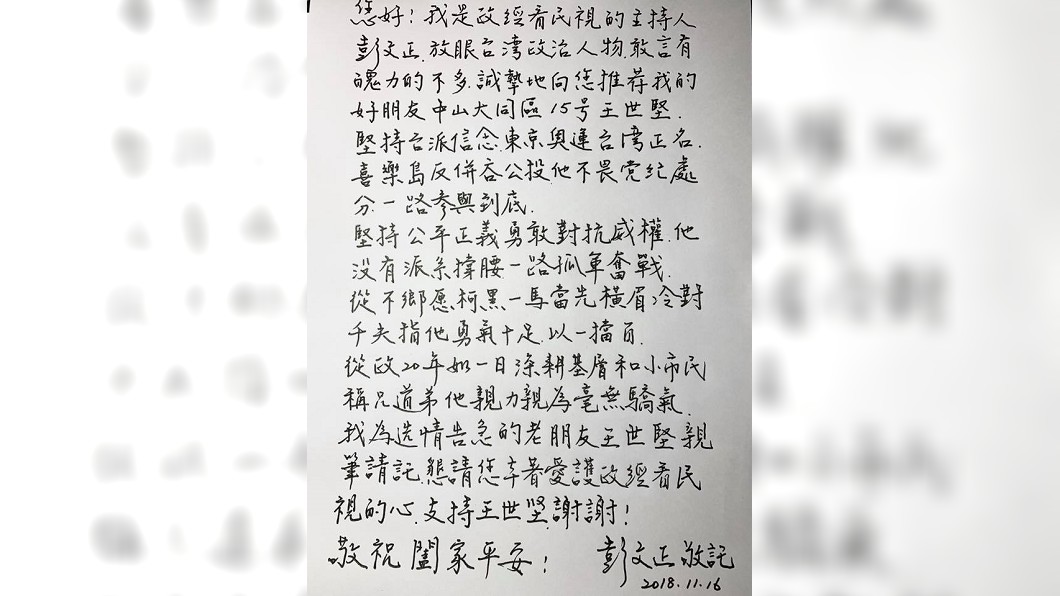 您好！我是政經看民視的主持人
彭文正.放眼台湾政治人物.敢言有
魄力的不多.誠摯地向您推荐我的
好朋友中山大同區15号王世堅.
堅持台派信念.東京奧運台湾正名.
喜樂島反併吞公投.他不畏党纪處
分.一路參與到底.
堅持公平正義勇敢對抗威權.他
没有派系撐腰一路孤軍奮戰.
從不鄉愿.柯黑一馬當先橫眉冷對
千夫指他勇氣十足.以一擋百.
從政20年如一日深耕基層和小市民
稱兄道弟他親力親為毫無驕氣.
我為选情告急的老朋友王世堅親
筆請託.懇請您本着愛護政經看民
視的心.支持王世堅.謝謝！
敬祝闔家平安！ 彭文正敬託
2018.11.16